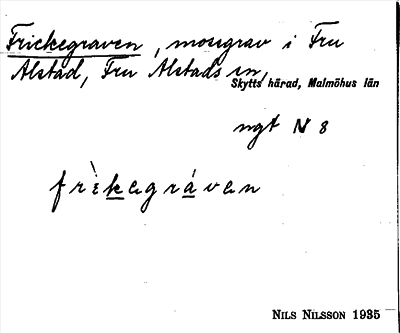 Frickegraven, mosegrav i Fru
Alstad, Fru Alstads sn,
Skytts härad, Malmöhus län
ngt N 8
frìkegráven
NILS NILSSON 1935